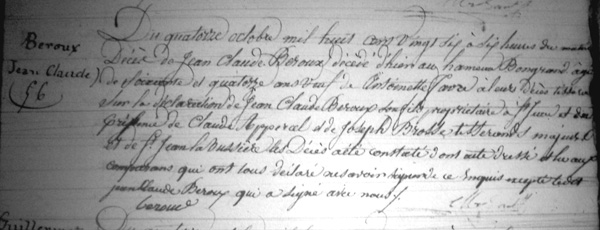 Beroux
Jean Claude
56
Du quatorze octobre mil huit cent vingt six à six heures du matin
Décès de Jean Claude Beroux, décédé hier au hameau Bongrand âgé
de soixante et quatorze ans veuf de Antoinette
Sur la déclaration de Jean Claude Beroux son fils propriétaire à St Jean et en
présence de Claude et de Joseph majeurs
et de St Jean la Bussière les Décès a été constaté dont acte dressé et lu aux
comparans qui ont tous déclaré ne savoir signer de ce enquis excepté ledit
jean Claude Beroux qui a signé avec nous
beroux